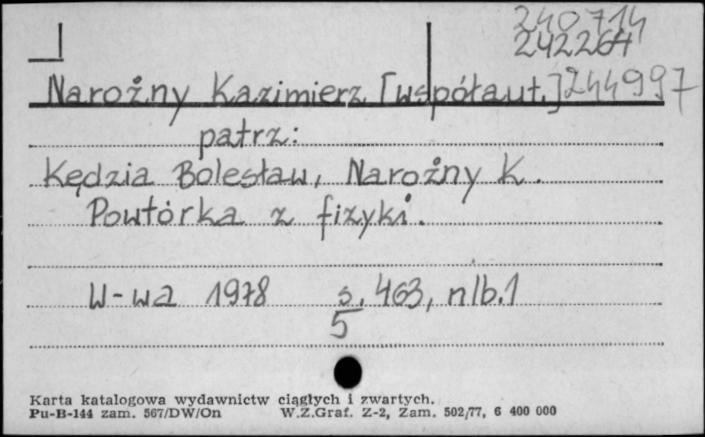 240714
242264
Narożny Kazimierz [współaut.] 244997
patrz:
Kędzia Bolesław, Narożny K.
Powtórka z fizyki.
W-wa 1978 s. 463, nlb.1
5
Karta katalogowa wydawnictw ciągłych i zwartych.
Pu-B-144 zam. 567/DW/On W.Z.Graf. Z-2, Zam. 502/77, 6 400 000